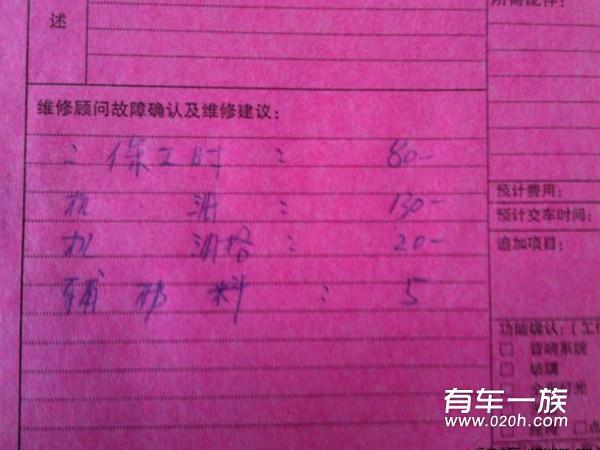 述
所需配件：
维修顾问故障确认及维修建议：
二保工时：80-
机油：130-
机油格：20-
辅材料：5
预计费用：
预计交车时间：
追加项目：
功能确认：（工
□ 音响系统
□ 玻璃
有车一族
www.020h.com